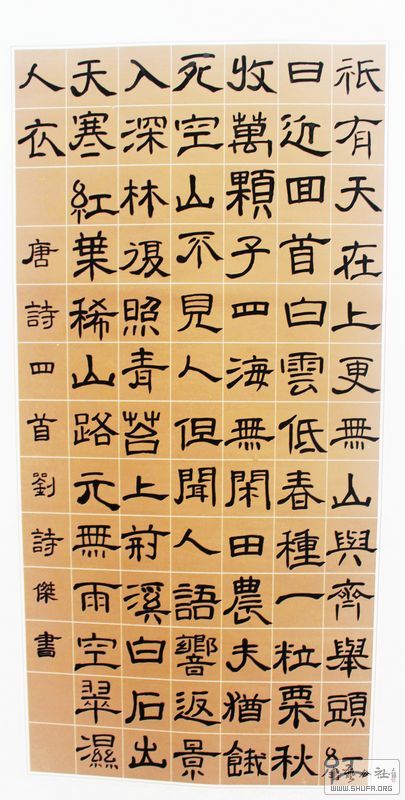 祇有天在上更無山與齊舉頭紅
日近回首白雲低春種一粒粟秋
收萬顆子四海無閑田農夫猶餓
死空山不見人但聞人語響返景
入深林復照青苔上荊溪白石出
天寒紅葉稀山路元無雨空翠濕
人衣
唐詩四首劉詩傑書
WWW.SHUFA.ORG